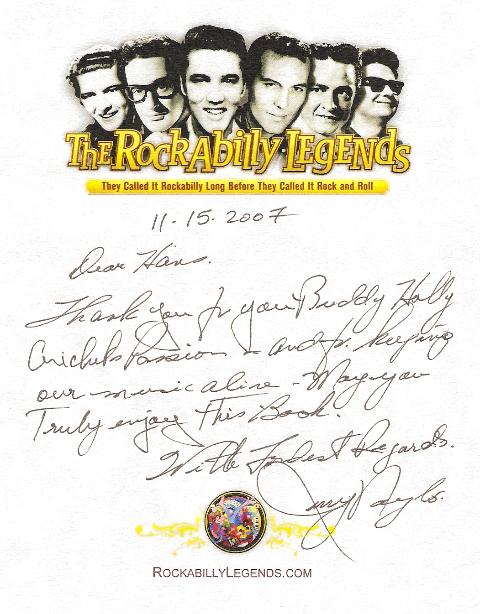 The Rockabilly Legends
They Called It Rockabilly Long Before They Called It Rock and Roll
11-15-2007
Dear Hans.
Thank you for your Buddy Holly
Crickets Passion - and for keeping
our music alive - May you
Truly enjoy This Book!
With Fondest Regards.
Jerry Naylor.
RockabillyLegends.com